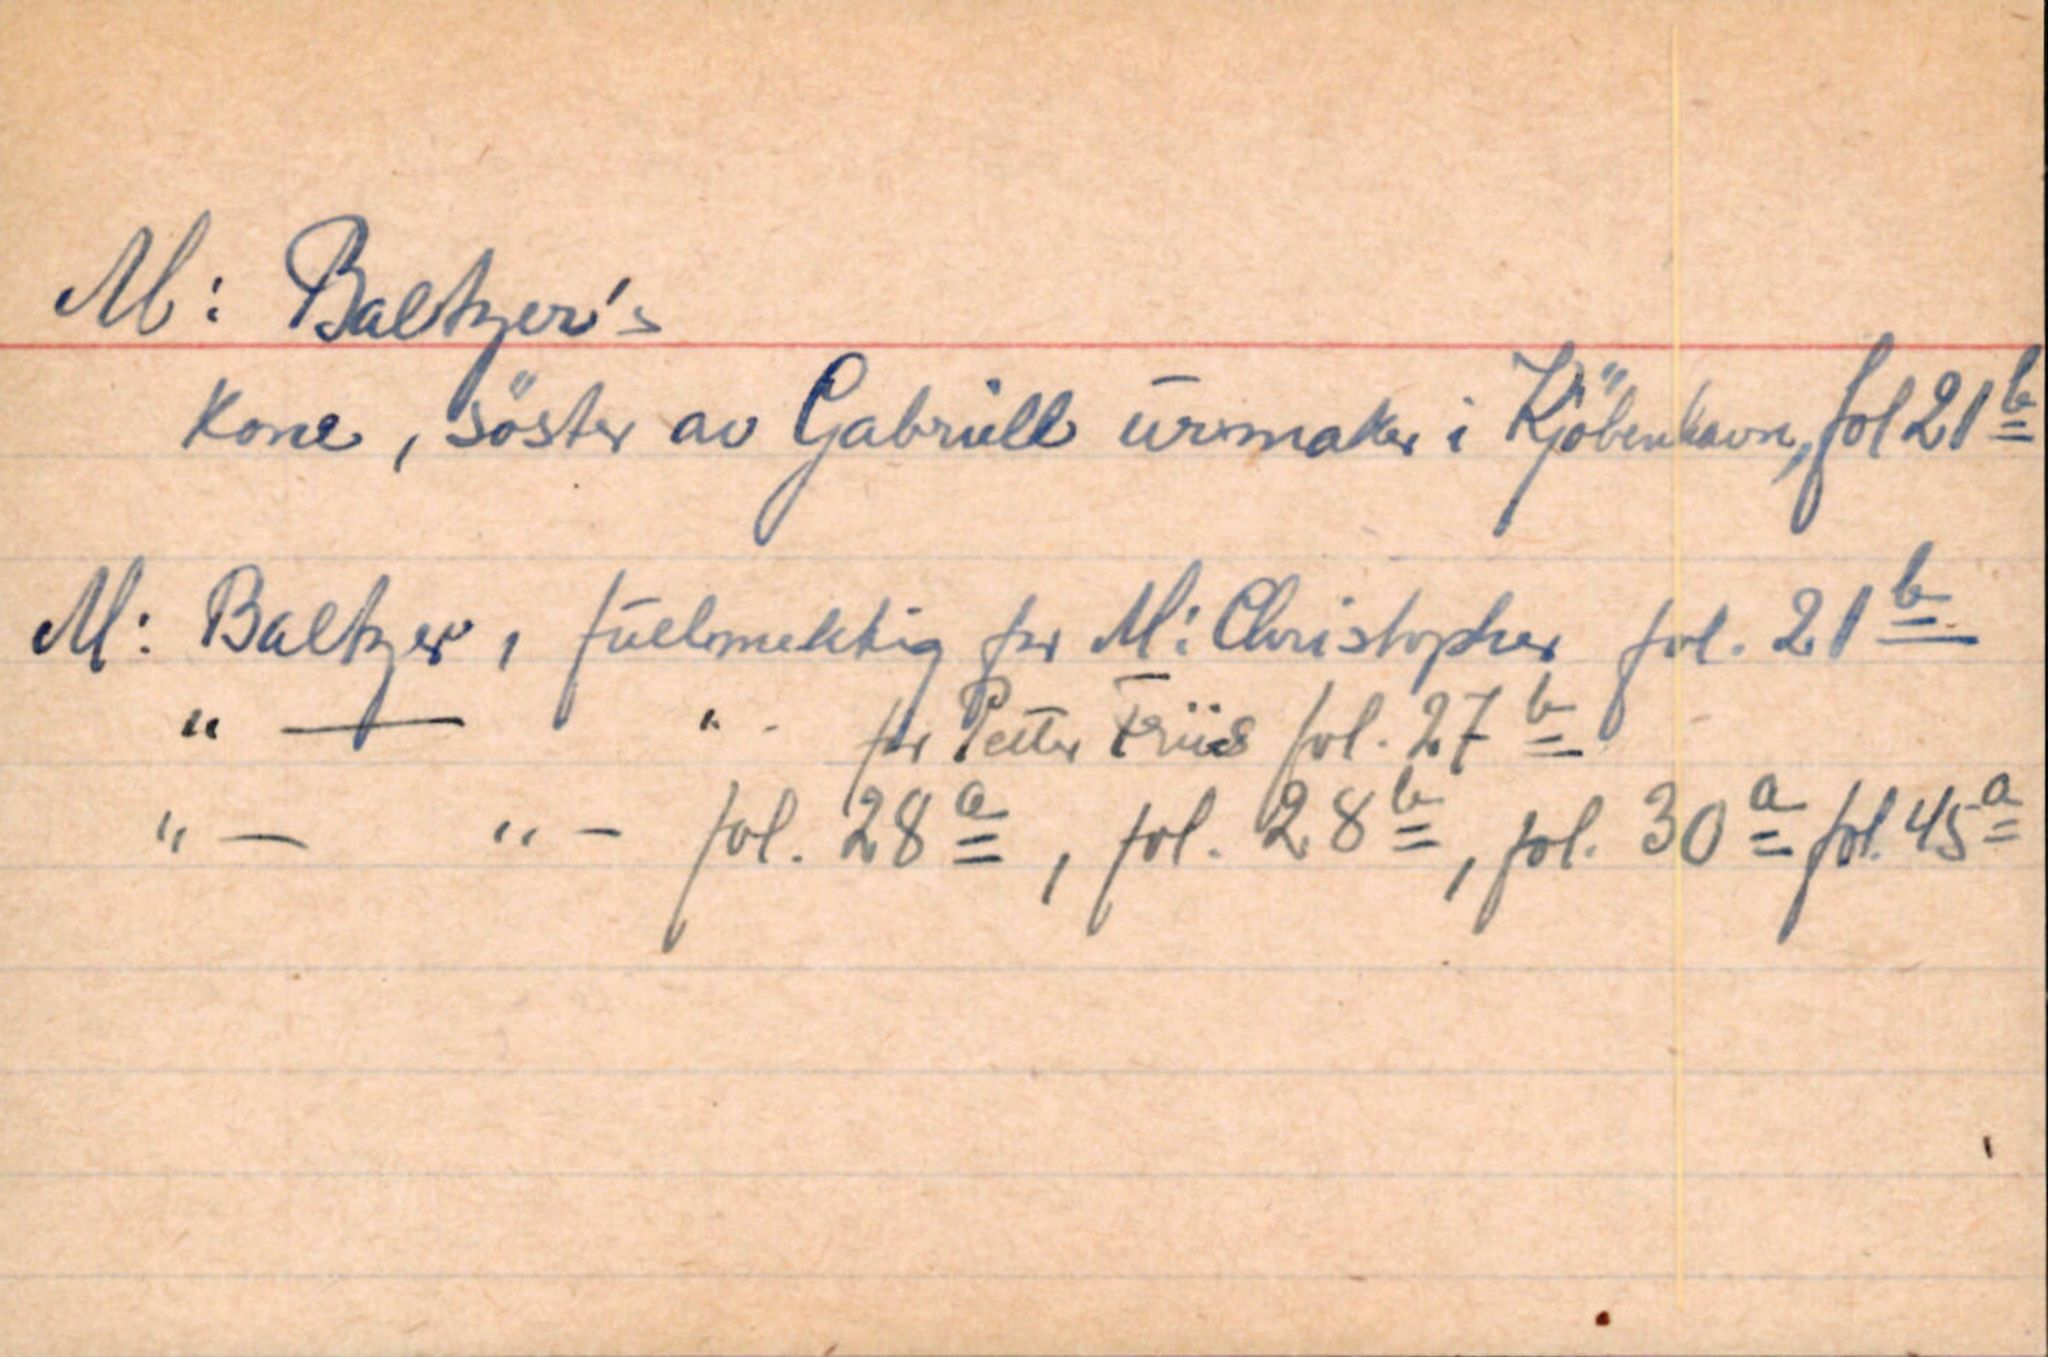 M: Baltzer's
kone, söster av Gabriell urmaker i Kjöbenhavn, fol 21b
M: Baltzer, fullmektig for M: Christopher fol. 21b
" — " - for Petter Friis fol. 27b
" — " — fol. 28a, fol. 28b, fol. 30a fol. 45a